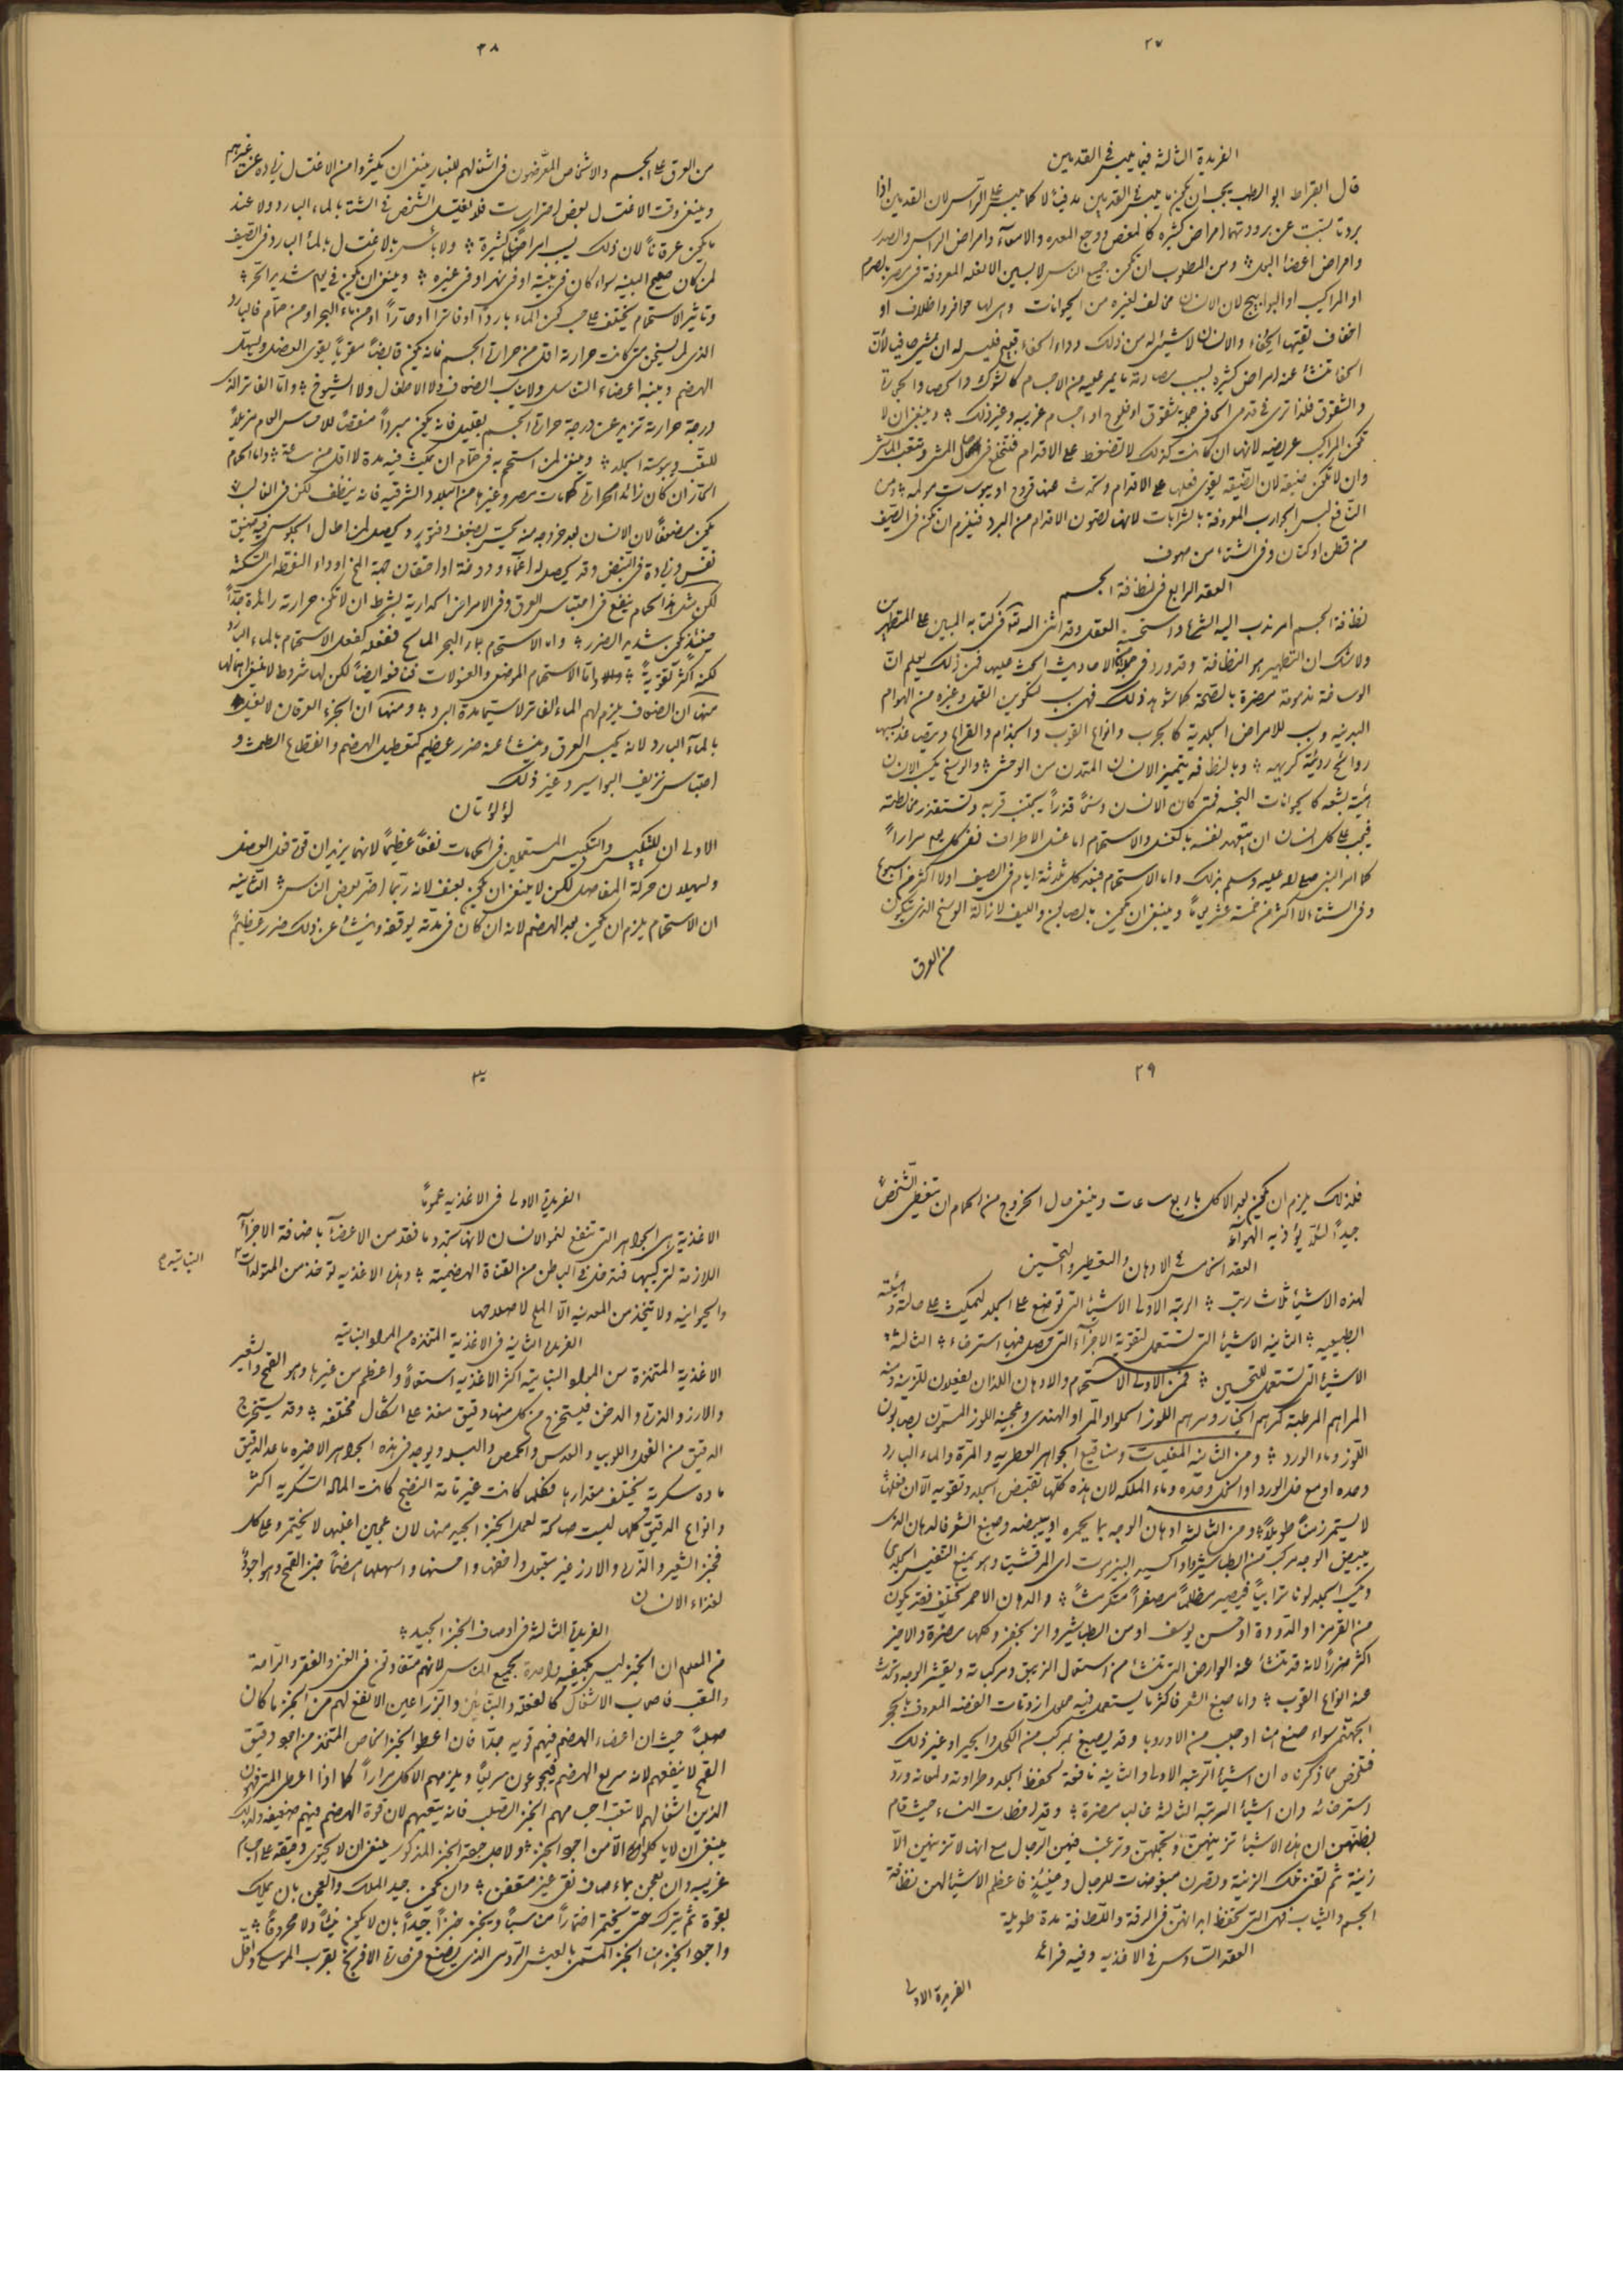 ٢٧
الفريدة الثالثة فيما يلبس في القدمين
قال ابقراط ابو الطب يجب ان يكون ما يلبس في القدمين مدفيئا لا كما يلبس على الرأس لان القدمين اذا
بردتا تسببت عن برودتهما امراض كثيرة كالمغص ووجع المعده والامعآء وامراض الراس والصدر
وامراض اعضاء البول ومن المطلوب ان تكون جميع الناس لابسين الانعله المعروفة في مصر بالصرم
او المراكيب او البوابيج لان الانسان مخالف لغيره من الحيوانات وهي لها حوافر واظلاف او
اخفاف تقيها الحفاء والانسان لا شيئ له من ذلك وداء الحفاء قبيح فليس له ان يمشي حافيا لأن
الحفا تنشأ عنه امراض كثيرة بسبب مصادمة ما يمر عليه من الاجسام كالشوك والحصا والحجارة
والشقوق فلذا ترى في قدمي الحافي جملة شقوق او قلوح او اجسام غريبه وغير ذلك وينبغي ان لا
تكون المراكيب عريضه لانها ان كانت كذلك لا تضغط على الاقدام فتنخلع في حال المشي وتتعب الماشي
وان لا تكون ضيقة لان الضيقه يقوى فعلها على الاقدام وتحدث عنها قروح او يبوسات مولمه ومن
النافع لبس الجوارب المعروفة بالشرابات لانها تصون الاقدام من البرد فيلزم ان تكون في الصيف
من قطن او كتان وفي الشتاء من صوف
العقد الرابع في نظافة الجسم
نظافة الجسم امر ندب اليه الشرع واستحسنه العقل وقد اثنى الله تعالى في كتابه المبين على المتطهرين
ولا شك ان التطهير هو النظافة وقد ورد في جملة الاحاديث الحث عليها فمن ذلك يعلم ان
الوساخة مذمومة مضرة بالصحة كما شوهد ذلك فهي سبب لتكوين القمل وغيره من الهوام
البدنيه وسبب للامراض الجلدية كالجرب وانواع القوب والجذام والقراع ويتصاعد بسببها
روائح رديئة كريهه وبالنظافه يتميز الانسان المتمدن من الوحشي والوسخ يكسب الانسان
هيئة بشعه كالحيوانات النجسه فمتى كان الانسان وسخا قذرا يجتنب قربه وتستقذر مخالطته
فيجب على كل انسان ان يتعهد نفسه بالغسل والاستحمام اما غسل الاطراف ففي كل يوم مرارا
كما امر النبي صلى الله عليه وسلم بذلك واما الاستحمام فبعد كل ثلاثة ايام في الصيف او لا اكثر من اسبوع
وفي الشتاء لا اكثر من خمسة عشر يوما وينبغي ان يكون بالصابون والليف لازالة الوسخ الذي يتكون
من العرق
٢٨
من العرق على الجسم والاشخاص المعرضون في اشغالهم للغبار ينبغي ان يكثروا من الاغتسال زيادة عن غيرهم
وينبغي وقت الاغتسال بعض احتراسات فلا يغتسل الشخص في الشتا بالماء البارد ولا عند
ما يكون عرقانا لان ذلك يسبب امراضا كثيرة ولا بأس بالاغتسال بالمآ البارد في الصيف
لمن كان صحيح البنيه سواء كان في بيته او في نهر او في غيره وينبغي ان يكون في يوم شديد الحر
وتاثير الاستحمام يختلف على حسب كون الماء باردا او فاترا او حارا او من ماء البحر او من حمام فالبارد
الذي لم يسخن متى كانت حرارته اقل من حرارة الجسم فانه يكون قابضا مقويا يقوي العضل ويسهل
الهضم وينبه اعضاء التناسل ولا يناسب الضعاف ولا الاطفال ولا الشيوخ واما الفاتر الذي
درجة حرارته تزيد عن درجة حرارة الجسم بقليل فانه يكون مبردا منقصا للاحساس العام مزيلا
للتعب ويبوسة الجلد وينبغي لمن استحم به في حمام ان يمكث فيه مدة لا اقل من ساعة واما الحمام
الحار ان كان زائد الحرارة كحمامات مصر وغيرها من البلاد الشرقيه فانه ينظف لكن في الغالب
يكون مضعفا لان الانسان بعد خروجه منه يحس بضعف وفتور ويحصل لمن اطال الجلوس فيه ضيق
نفس وزيادة في النبض وقد يحصل له اغماء ودوخة او احتقان جهة المخ او داء النقطه اي السكتة
لكن مثل هذا الحمام ينفع في احتباس العرق وفي الامراض الحدارية بشرط ان لا تكون حرارته زائدة جدا
فحينئذ يكون شديد الضرر واما الاستحمام بماء البحر المالح ففعله كفعل الاستحمام بالماء البارد
لكنه اكثر تقوية واما الاستحمام الموضعي والغسولات فنافع ايضا لكن لها شروط لا ينبغي اهمالها
منها ان الضعاف يلزم لهم الماء الفاتر لا سيما مدة البرد ومنها ان الجزء العرقان لا يغسل
بالمآء البارد لانه يحبس العرق وينشأ عنه ضرر عظيم كتعطيل الهضم وانقطاع الطمث و
احتباس نزيف البواسير وغير ذلك
لؤلؤتان
الاولى ان للتكبيس والتكييس المستعملين في الحمامات نفعا عظيما لانهما يزيدان قوة فعل العضل
ويسهلان حركة المفاصل لكن لا ينبغي ان يكون بعنف لانه ربما اضر بعض الناس الثانيه
ان الاستحمام يلزم ان يكون بعد الهضم لانه ان كان في مدته يوقفه وينشأ عن ذلك ضرر عظيم
٢٩
فلذلك يلزم ان يكون بعد الاكل باربع ساعات وينبغي حال الخروج من الحمام ان يتغطى الشخص
جيدا لئلا يؤذيه الهوآء
العقد الخامس في الادهان والتعطير والتحسين
لهذه الاشيأ ثلاث رتب الرتبه الاولى الاشيأ التي توضع على الجلد ليمكث على حالته وهيئته
الطبيعيه الثانيه الاشيأ التي تستعمل لتقوية الاجزآء التي حصل فيها استرخاء الثالثة
الاشيأ التي تستعمل للتحسين فمن الاولى الاستحمام والادهان اللذان يفعلان للزينة ومنه
المراهم المرطبة كمرهم الخيار ومرهم اللوز الحلو او المر او الهندي وعجينة اللوز المسمون بصابون
اللوز وماء الورد ومن الثانيه المغليات ومناقيع الجواهر العطريه والمرة والماء البارد
وحده او مع خل الورد او الخل وحده وماء الملكه لان هذه كلها تقبض الجلد وتقويه الا ان فعلها
لا يستمر زمنا طويلا ومن الثالثة ادهان الوجه بما يحمره او يبيضه وصبغ الشعر فالدهان الذي
يبيض الوجه مركب من الطباشير او اكسيد البيزموت اي المرقشيتا وهو يمنع التنفس الجلدي
ويكسب الجلد لونا ترابيا فيصير مظلما مصفرا متكرشا والدهان الاحمر مختلف فقد يكون
من القرمز او الدودة او حسن يوسف او من الطباشير والزنجفر وكلها مضرة والاخير
اكثر ضررا لانه قد تنشأ عنه العوارض التي تنشأ من استعمال الزيبق ومركباته ويقشر الوجه وتحدث
عنه انواع القوب واما صبغ الشعر فاكثر ما يستعمل فيه محلول ازوتات الفضه المعروف بحجر
الجهنم سواء صنع هنا او جلب من الاوروبا وقد يصبغ بمركب من الكحل والجير او غير ذلك
فتلخص مما ذكرناه ان اشيأ الرتبه الاولى والثانيه نافعة لحفظ الجلد وطراوته ولمعانه ورد
استرخائه وان اشيأ الرتبه الثالثة غالبا مضرة وقد اخطأت النساء حيث قام
بظنهن ان هذه الاشيأ تزينهن وتجملهن وترغب فيهن الرجال مع انها لا تزينهن الا
زينة ثم تفنى تلك الزينة ويصرن مبغوضات للرجال وحينئذ فاعظم الاشيأ لهن نظافة
الجسم والثياب فهي التي تحفظ ابدانهن في الرقة واللطافة مدة طويلة
العقد السادس في الاغذيه وفيه فرائد
الفريدة الاولى
٣٠
الفريدة الاولى في الاغذيه عموما
الاغذية هي الجواهر التي تنفع لنمو الانسان لانها تسترد ما فقد من الاعضآ باضافة الاجزآء
اللازمة لتركيبها فتدخل في الباطن من القناة الهضمية وهذه الاغذيه تؤخذ من المتولدات
النباتيه
والحيوانيه ولا يتخذ من المعدنيه الا الملح لاصلاحها
الفريدة الثانية في الاغذية المتخذه من المواد النباتيه
الاغذية المتخذة من المواد النباتية اكثر الاغذيه استعمالا واعظم من غيرها وهو القمح والشعير
والارز والذرة والدخن فيستخرج من كل منها دقيق منفذ على اشكال مختلفه وقد يستخرج
الدقيق من الفول واللوبيا والعدس والحمص والبسله ويوجد في هذه الجواهر الاخيره ما عدا الدقيق
ماده سكرية يختلف مقدارها فكلما كانت غير تامة النضج كانت الماده السكريه اكثر
وانواع الدقيق كلها ليست صالحة لعمل الخبز الجيد منها لان عجين اغلبها لا يختمر وعلى كل
فخبز الشعير والذرة والارز غير مقبول وانفعها واحسنها واسهلها هضما خبز القمح وهو اجود
لغذاء الانسان
الفريدة الثالثة في اوصاف الخبز الجيد
من المعلوم ان الخبز ليس بكيفيه واحدة لجميع الناس لانهم متفاوتون في الغنى والفقر والراحة
والتعب فاصحاب الاشغال كالفعله والبنائين والزراعين الانفع لهم من الخبز ما كان
صلبا حيث ان اعضاء الهضم فيهم قويه جدا فان اعطوا الخبز الخاص المتخذ من اجود دقيق
القمح لا ينفعهم لانه سريع الهضم فيجوعون سريعا ويلزمهم الاكل مرارا كما اذا اعطى المترفهون
الذين اشغالهم لا تتعب اجسامهم الخبز الصلب فانه يتعبهم لان قوة الهضم فيهم ضعيفه ولذلك
ينبغي ان لا ياكلوا الا من اجود الخبز ولاجل جودة الخبز المذكور ينبغي ان لا يحتوي دقيقه على اجسام
غريبه وان يعجن بماء صاف نقي غير متعفن وان يكون جيد الملك والعجن بان يملك
بقوة ثم يترك حتى يختمر اختمارا مناسبا ويخبز خبزا جيدا بان لا يكون نيئا ولا محروقا
واجود الخبز هنا الخبز المسمى بالعيش الرومي الذي يصنع في حارة الافرنج بقرب الموسكي واقل